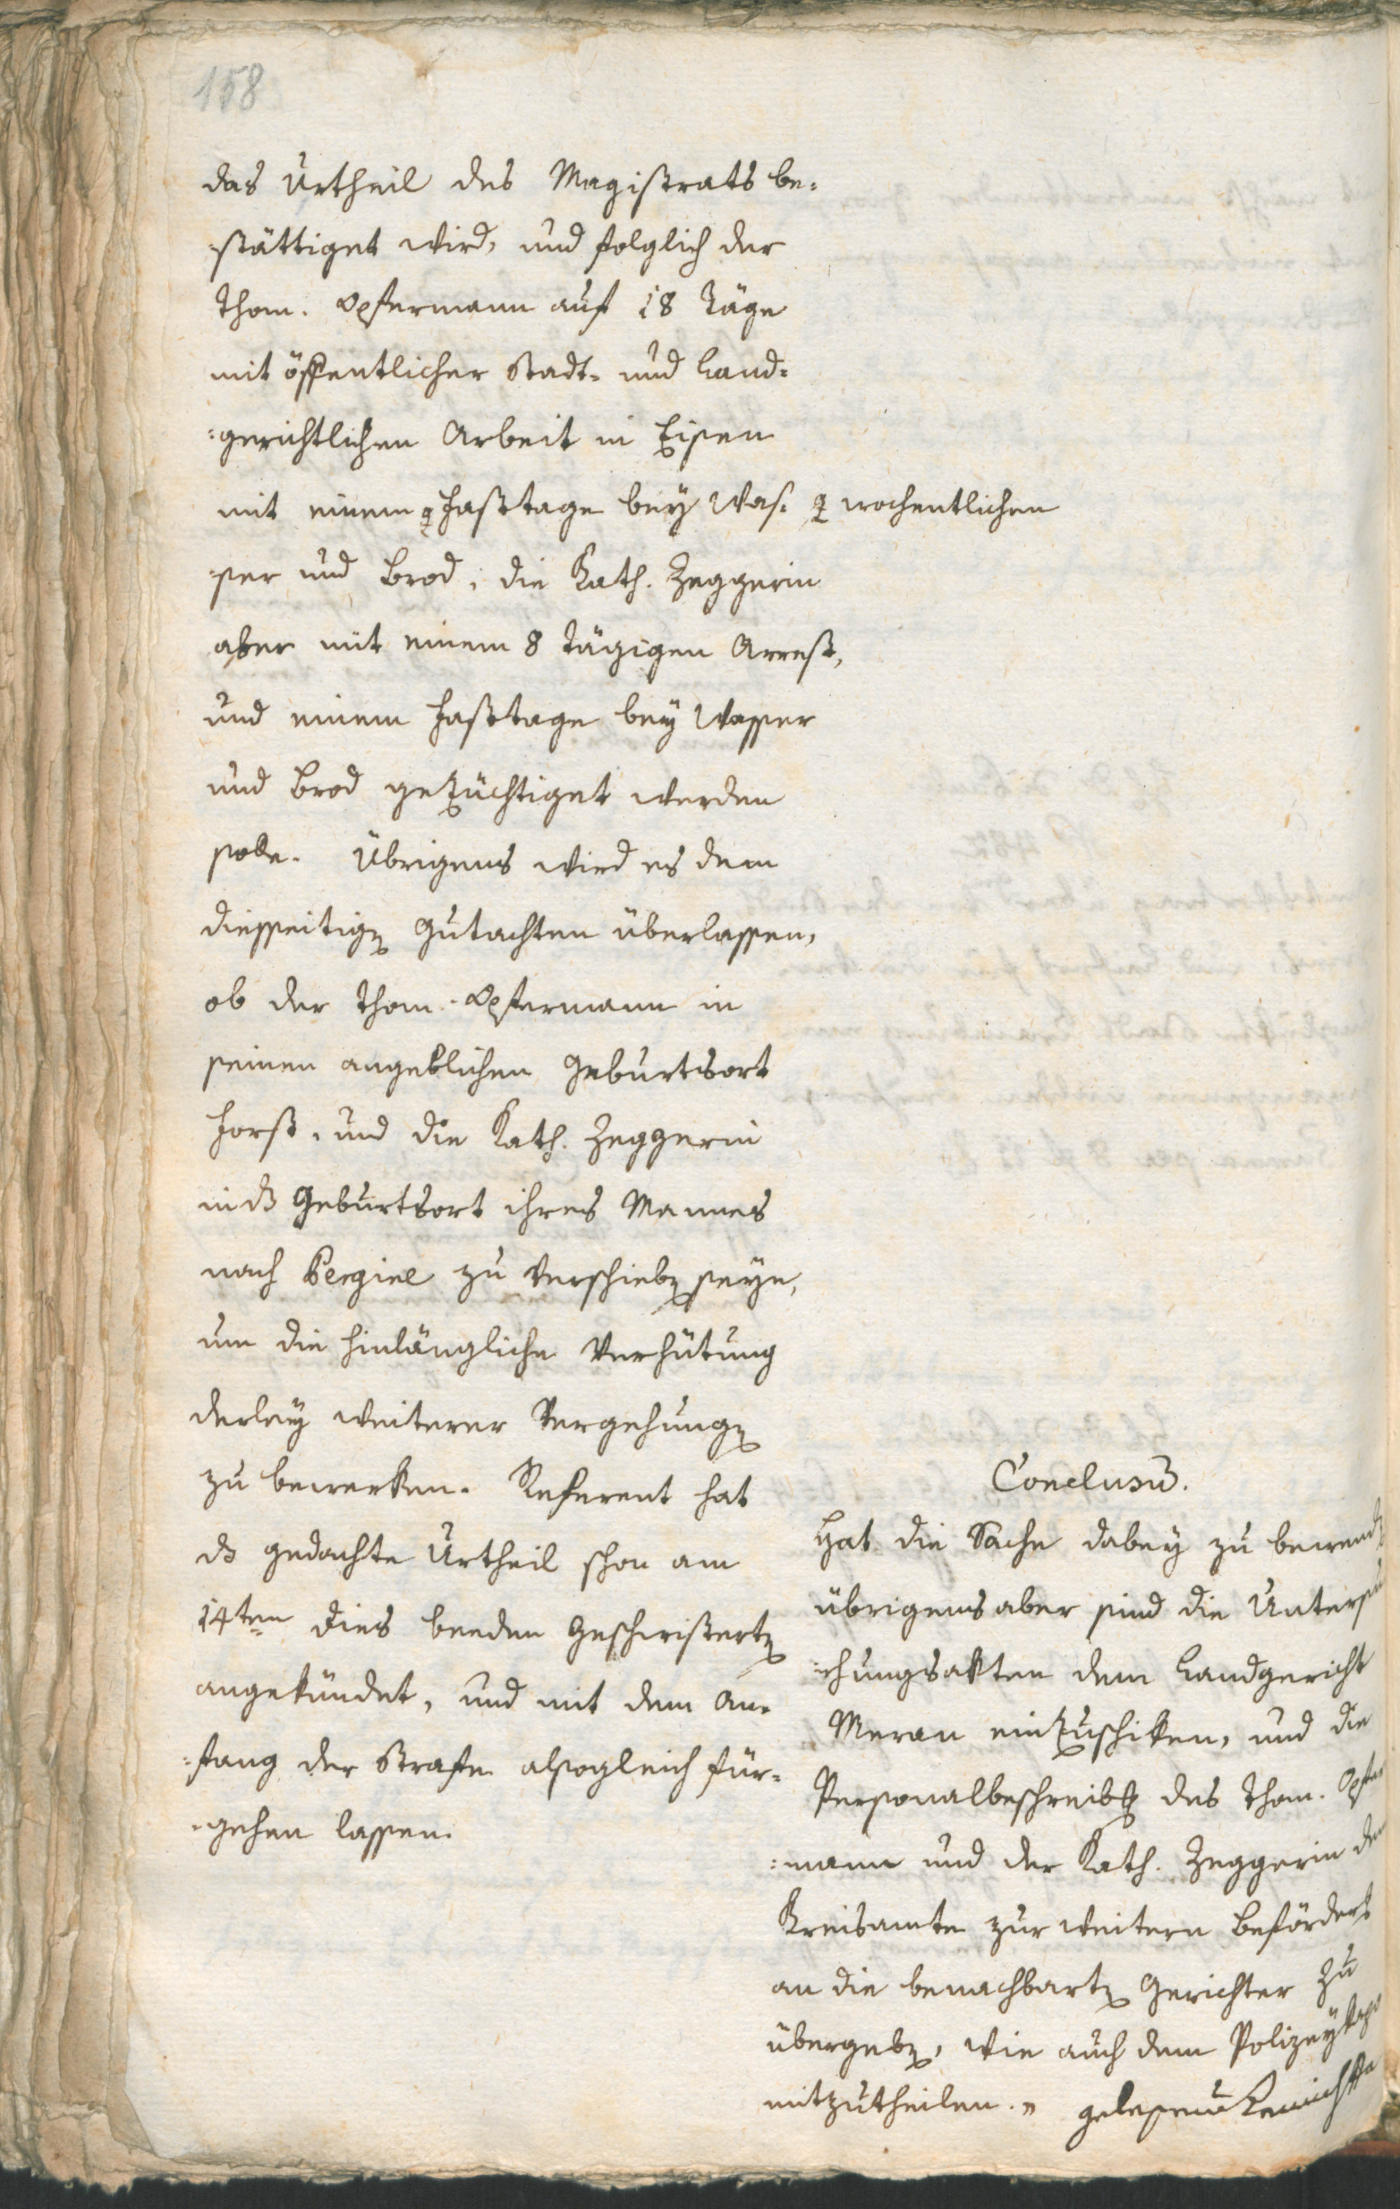 158
das Urtheil des Magistrats be=
stättiget wird, und folglich der
Thom. Opfermann auf 18 Täge
mit öffentlicher Stadt- und Land=
=gerichtlichen Arbeit in Eisen
mit einem Fasttage bey Was= wochentlichen
ser und Brod, die Kath. Zeggerin
aber mit einem 8 tägigen Arrest,
und einem Fasttage bey Wasser
und Brod gezüchtiget werden
solle. Übrigens wird es dem
diesseitig Gutachten überlassen,
ob der Thom. Opfermann in
seinen angeblichen Geburtsort
Forst, und die Kath. Zeggerin
in ds Geburtsort ihres Mannes
nach Pergine zu verschieb seye,
um die hinlängliche Verhütung
derley weiterer Vergehung
zu bewerken. Referent hat
ds gedachte Urtheil schon am
14ten dies beeden Geschwistert
angekündet, und mit dem An=
=fang der Strafe alsogleich für=
=gehen lassen.
Conclusum.
Hat die Sache dabey zu bewend
übrigens aber sind die Untersu
=chungsakten dem Landgericht
Meran einzuschiken, und die
Personalbeschreibg des Thom. Opfer
=mann und der Kath. Zeggerin dem
Kreisamte zur weitern Beförderg
an die benachbart Gerichter zu
übergeb, wie auch dem
mitzutheilen.